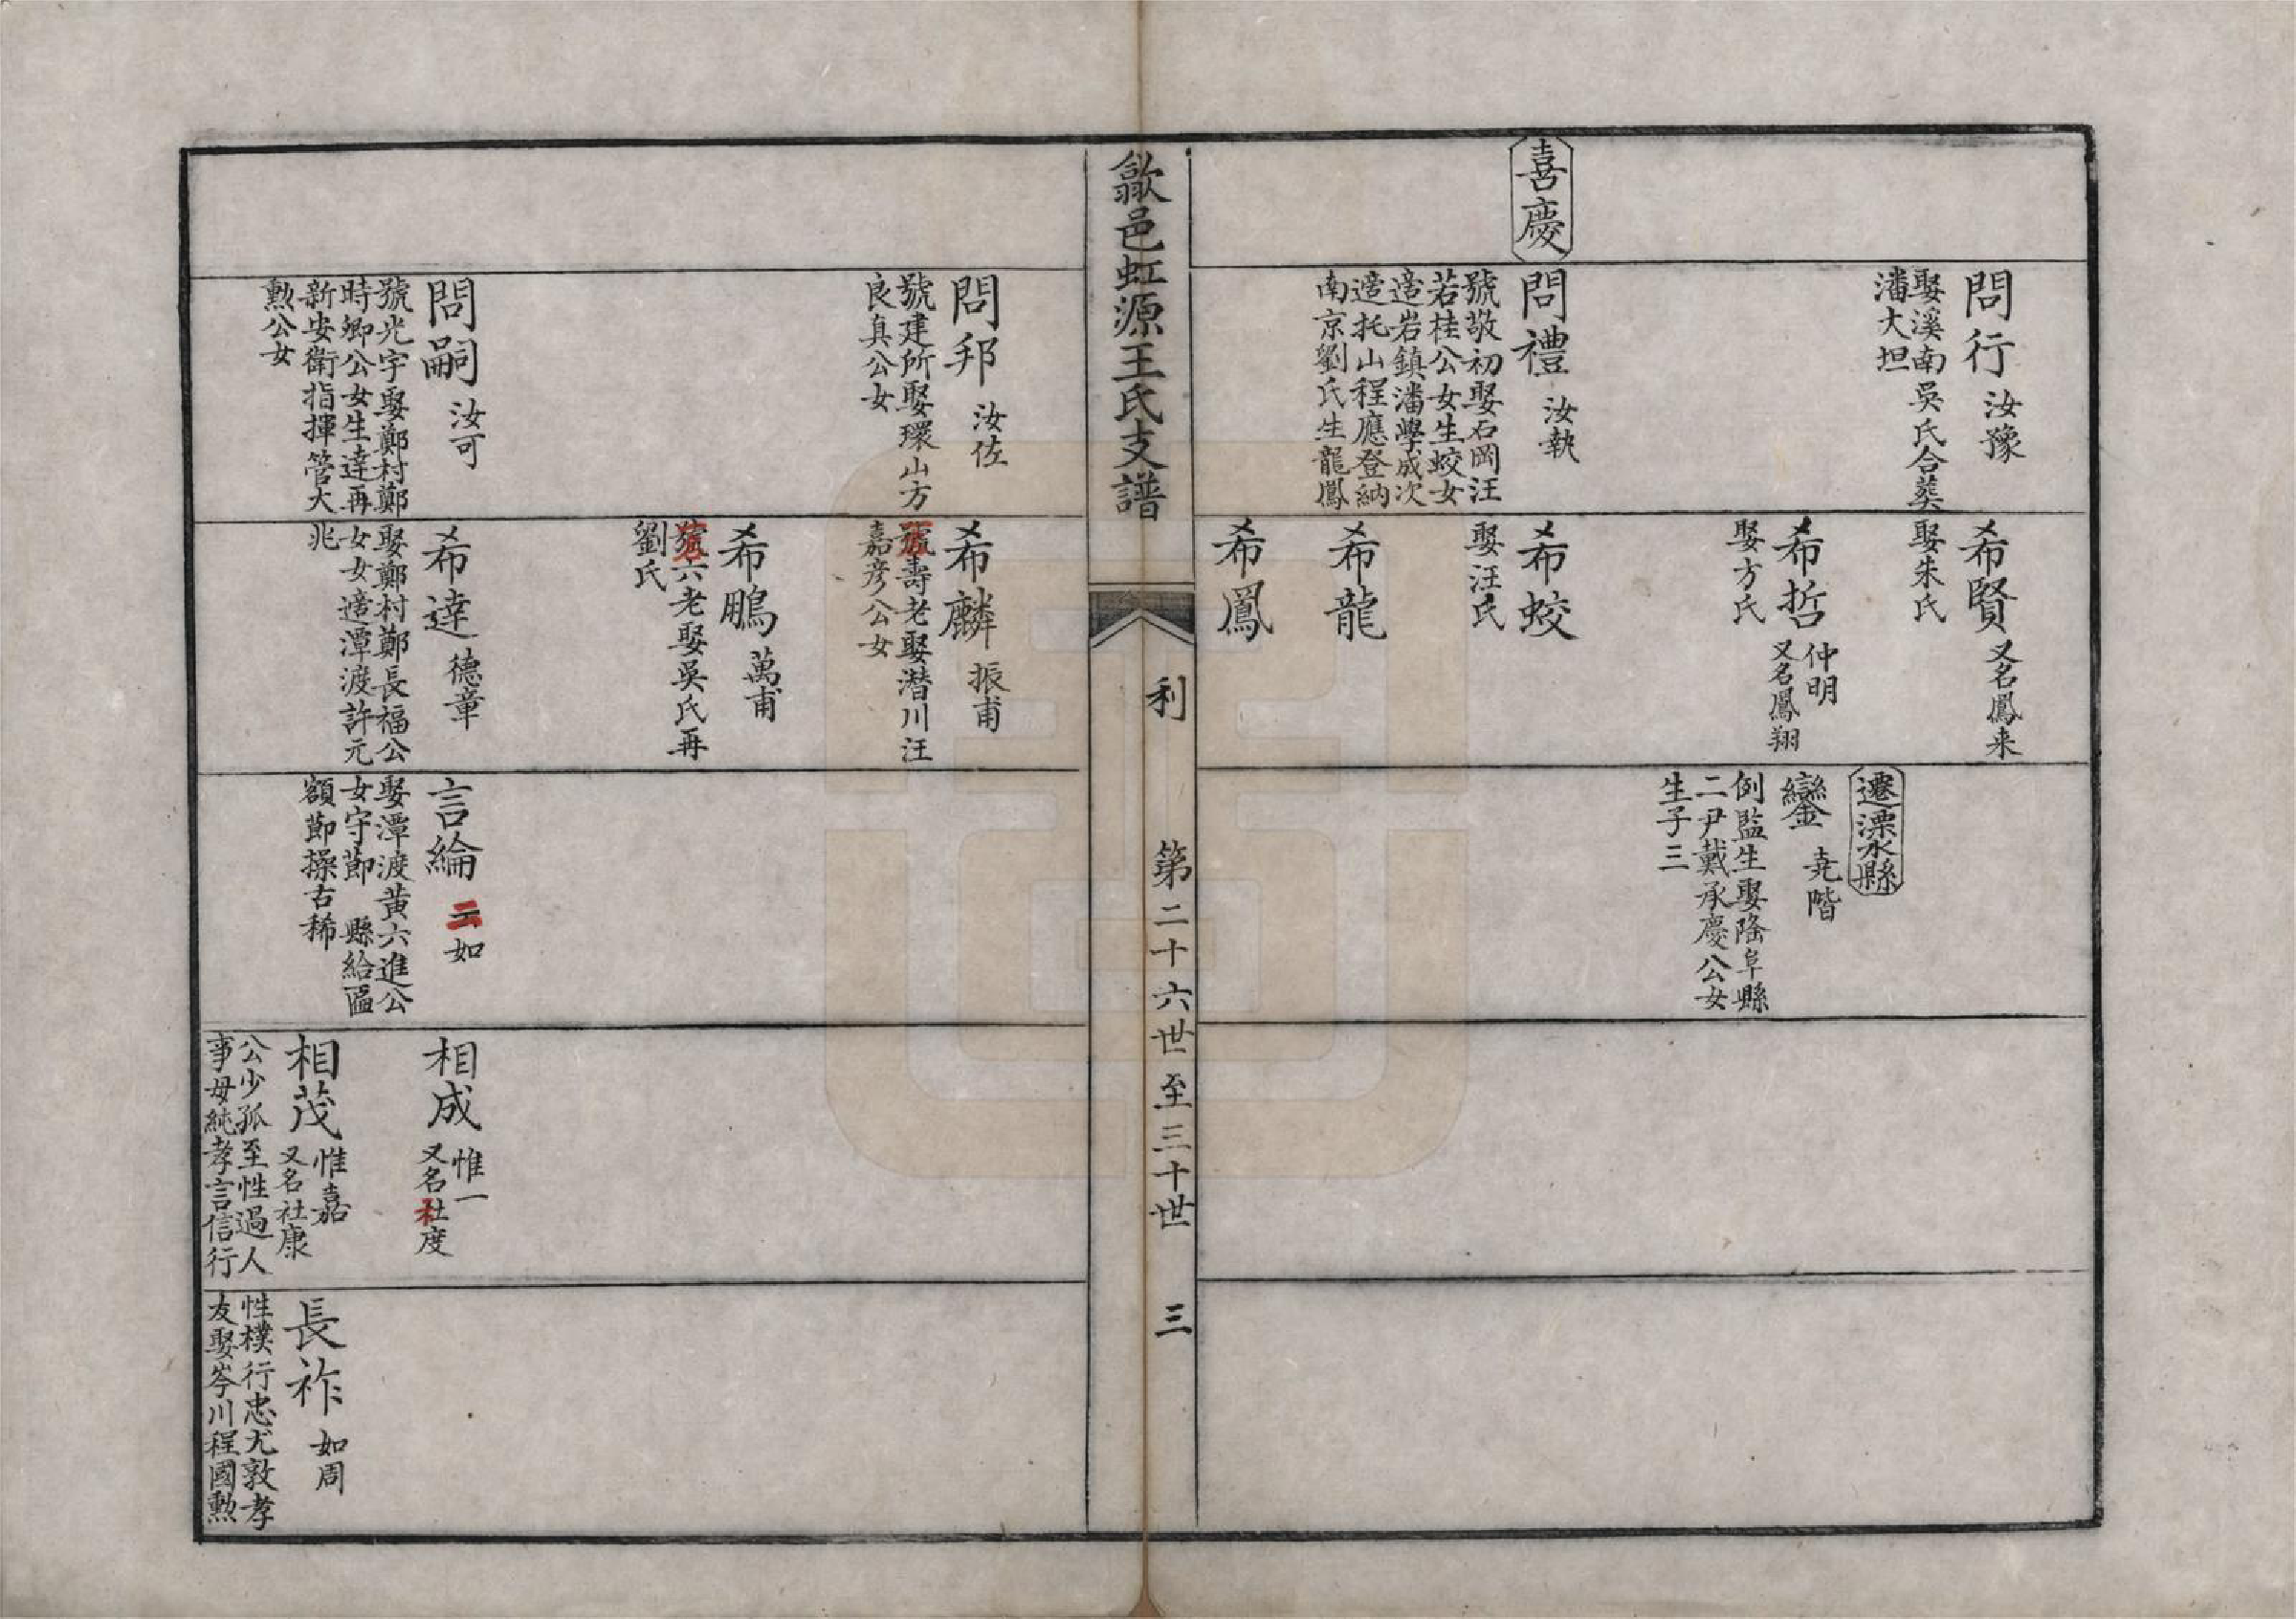 喜慶
問行 汝豫
娶溪南吳氏合葬
潘大坦
問禮 汝執
號敬初娶石岡汪
若桂公女生蛟女
適岩鎮潘學成次
適托山程應登納
南京劉氏生龍鳳
希賢 又名鳳来
娶朱氏
希哲 仲明
又名鳳翔
娶方氏
希蛟
娶汪氏
希龍
希鳳
遷溧水縣
鑾 尭階
例監生娶隆阜縣
二尹戴承慶公女
生子三
歙邑虹源王氏支譜
利
第二十六世至三十世
三
問邦 汝佐
號建所娶環山方
良真公女
問嗣 汝可
號光宇娶鄭村鄭
時卿公女生逹再
新安衛指揮管大
勲公女
希麟 振甫
壽老娶潛川汪
嘉彦公女
希鵬 萬甫
六老娶吳氏再
劉氏
希逹 德章
娶鄭村鄭長福公
女女適潭渡許元
兆
言綸 二如
娶潭渡黄六進公
女守節 縣給匾
額節操古稀
相成 惟一
又名社度
相茂 惟嘉
又名社康
公少孤至性過人
事母純孝言信行
長祚 如周
性樸行忠尤敦孝
友娶岑川程國勲